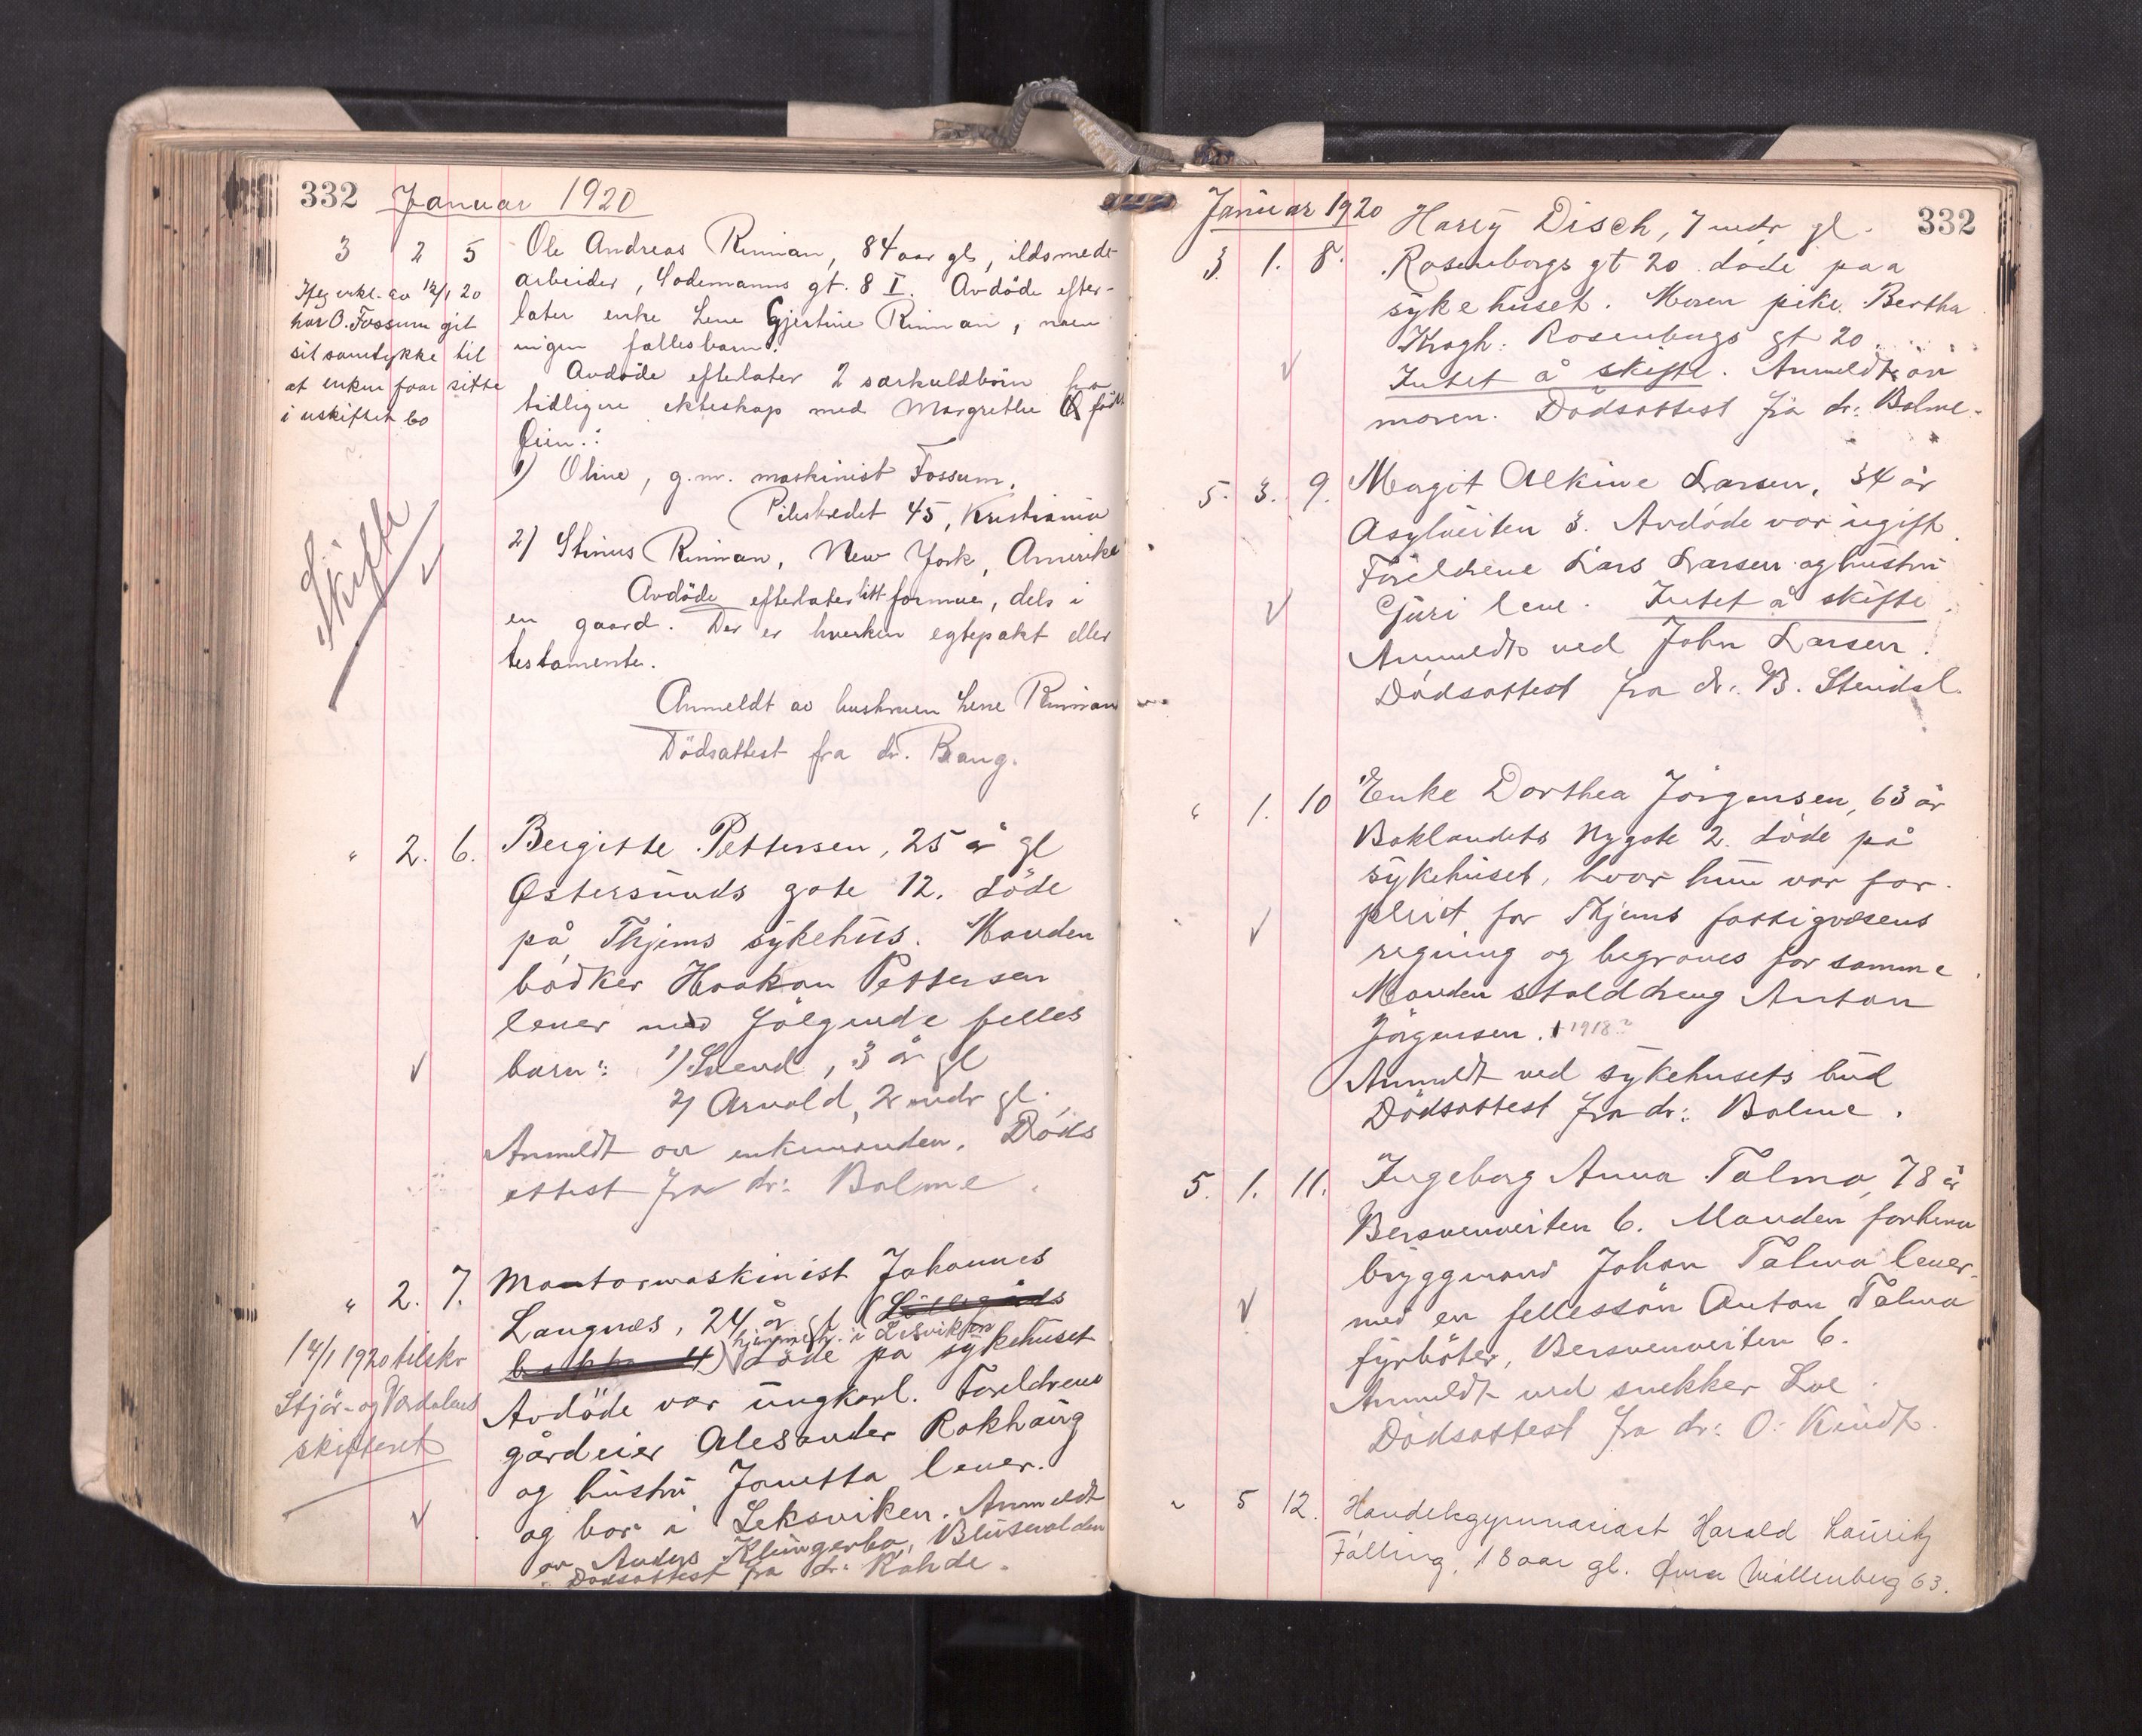 332 Januar 1920
3 2 5 Ole Andreas Rinnan, 84 aar gl, ildsmeds-
arbeider, Lodemanns gt. 8 I. Avdöde efter-
later enke Lene Gjertine Rinnan, men
ingen fællesbarn.
Avdöde efterlater 2 særkuldbörn fra
tidligere ekteskap med Margrethe födt
Öien.:
1) Oline, g.m. maskinist Fossum,
Pilestrædet 45, Kristiania
2) Stinus Rinnan, New York, Amerika
Avdöde efterlater litt formue, dels i
en gaard. Der er hverken egtepakt eller
testamente.
Anmeldt av hustruen Lene Rinnan
Dödsattest fra dr. Bang.
Ifölg erkl. av 12/1 20
har O. Fossum git
sit samtykke til
at enken faar sitte
i uskiftet bo
Skifte
" 2. 6. Bergitte Pettersen, 25 år gl
Östersunds gate 12. döde
på Thjems sykehus. Manden
bödker Haakon Pettersen
lever med fölgende felles
barn: 1) Svend, 3 år gl
2) Arnold, 2 mdr gl.
Anmeldt av enkemanden. Döds
attest fra dr: Bolme.
" 2. 7. Maatormaskinist Johannes
Langnæs, 24 år gl (
hjemmeh. i Lesviken
) döde på sykehuset
Avdöde var ungkarl. Foreldrene
gårdeier Alesander Rokhaug
og hustru Janetta lever.
og bor i Leksviken. Anmeldt
av Anders Klungerbo, Blusevolden
Dödsattest fra dr: Rohde.
14/1 1920 tilskr
Stjör- og Værdalens
skifteret
Januar 1920 332
3. 1. 8. Harry Disch, 7 mdr gl.
Rosenborgs gt 20. döde paa
sykehuset. Moren pike Bertha
Krogh: Rosenborgs gt 20.
Intet å skifte. Anmeldt av
moren. Dödsattest fra dr: Bolme.
5. 3. 9. Margit Alkine Larsen, 34 år
Asylveiten 3. Avdöde var ugift.
Foreldrene Lars Larsen og hustru
Guri leve. Intet å skifte.
Anmeldt ved John Larsen.
Dödsattest fra dr. B. Stendal.
" 1. 10 Enke Dorthea Jörgensen, 63 år
Baklandets Nygate 2. döde på
sykehuset, hvor hun var for-
pleiet for Thjems fattigvæsens
regning og begraves for samme.
Manden stalddreng Anton
Jörgensen. † 1918?
Anmeldt ved sykehusets bud
Dödsattest fra dr: Bolme.
5. 1. 11. Ingeborg Anna Talmo, 78 år
Bersvenveiten 6. Manden forhenv
bryggmand Johan Talmo lever.
med en fellessön Anton Talmo
fyrböter, Bersvenveiten 6.
Anmeldt ved snekker Loe.
Dödsattest fra dr: O. Kindt.
" 5 12. Handelsgymnasiast Harald Lauritz
Fölling, 18 aar gl. Övre Möllenberg 63.